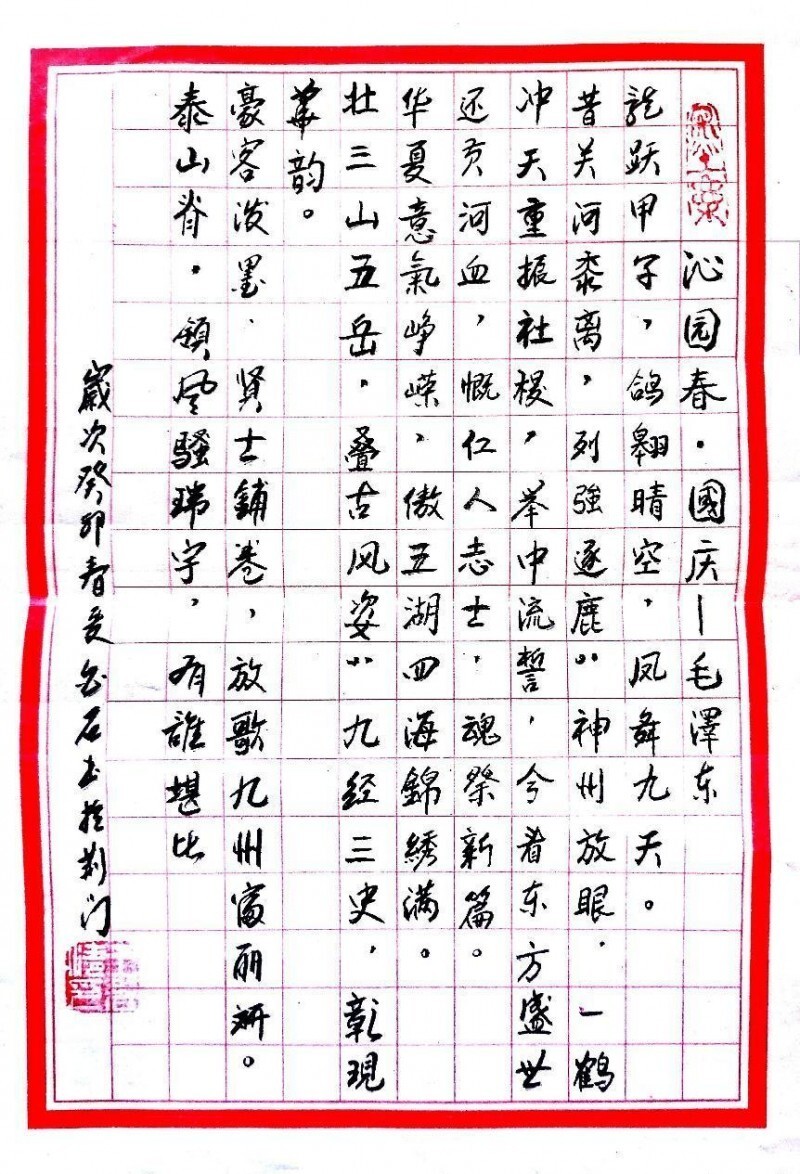 沁园春·國庆—毛澤东
龙跃甲子，鸽翱晴空，凤舞九天。
昔关河黍离，列強逐鹿；神州放眼，一鹤
冲天重振社稷，举中流誓，今看东方盛世
还贡河血，慨仁人志士，魂祭新篇。
华夏意氣峥嵘，傲五湖四海錦綉满。
壮三山五岳，叠古风姿；九经三史，彰現
华韵。
豪客泼墨，贤士鋪卷，放歌九州富丽妍。
泰山脊，领风騷瑞字，有誰堪比
嵗次癸卯春
石书於荆门